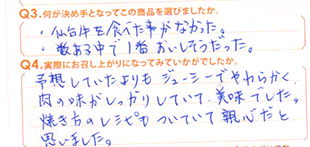 Q3.何が決め手となってこの商品を選びましたか。
・仙台牛を食べた事がなかった。
・数ある中で1番おいしそうだった。
Q4.実際にお召し上がりになってみていかがでしたか。
予想していたよりもジューシーでやわらかく
肉の味がしっかりしていて、美味でした。
焼き方のレシピもついていて親心だと
思いました。